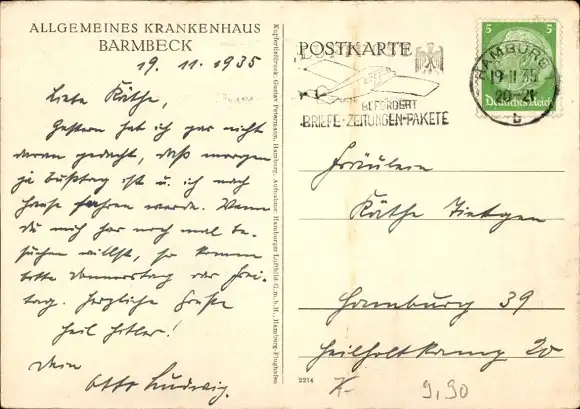 ALLGEMEINES KRANKENHAUS
BARMBECK
19. 11. 1935
Liebe Käthe,
Gestern hab ich gar nicht
daran gedacht, daß morgen
ja Bußtag ist u. ich nach
Hause fahren werde. Wenn
du mich hier noch mal be-
suchen willst, so komm
bitte Donnerstag oder Frei-
tag. Herzliche Grüße
Heil Hitler!
Dein
Otto Ludwig.
Kupfertiefdruck: Gustav Petermann, Hamburg. Aufnahme: Hamburger Luftbild G.m.b.H., Hamburg-Flughafen
POSTKARTE
BEFÖRDERT
BRIEFE-ZEITUNGEN-PAKETE
HAMBURG
19 11 35
20-21
b
5 5
Deutsches Reich
Fräulein
Käthe Tietgen
Hamburg 39
Heilholtkamp 20
2274
K- 9,90